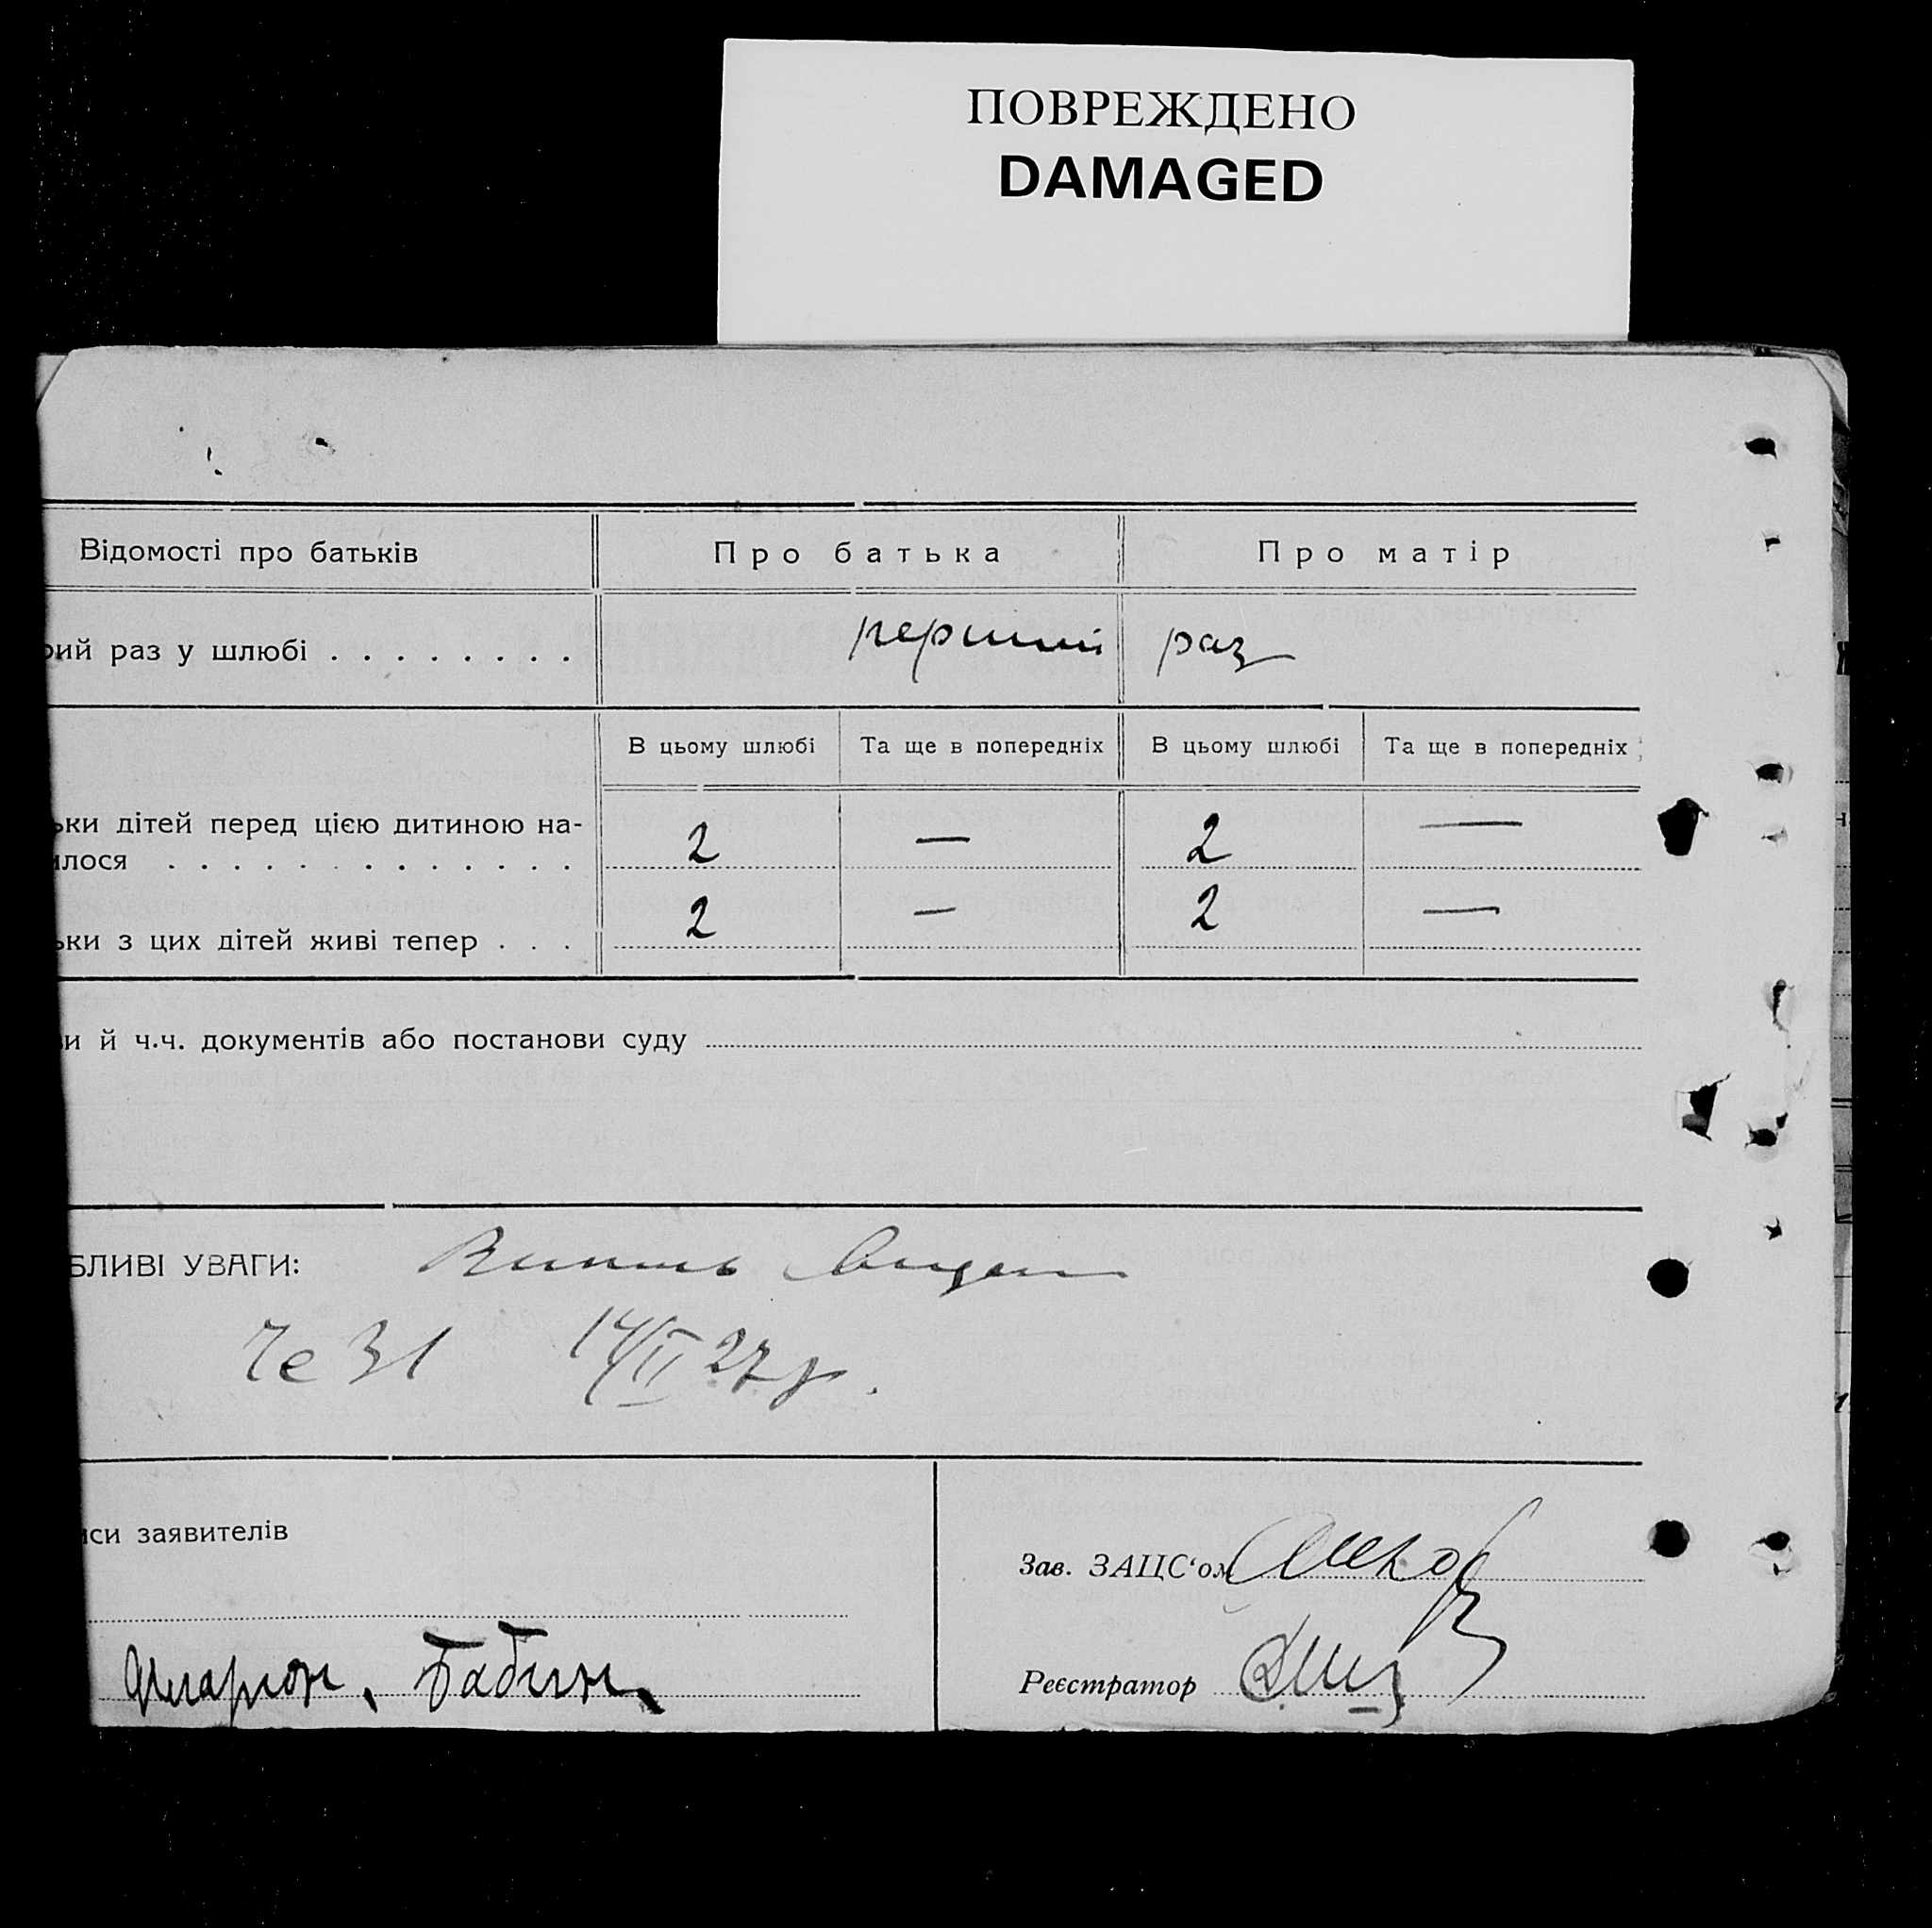 ПОВРЕЖДЕНО
DAMAGED
Відомості про батьків Про батька Про матір
рий раз у шлюбі . . . . . . . . перший раз
В цьому шлюбі Та ще в попередніх В цьому шлюбі Та ще в попередніх
ьки дітей перед цією дитиною на-
илося . . . . . . . . . . . . . 2 — 2 —
ьки з цих дітей живі тепер . . . 2 — 2 —
ви й ч.ч. документів або постанови суду
БЛИВІ УВАГИ: Випись видан
31 14/II 27 р.
иси заявителів
Зав. ЗАЦС‘ом
Иларион. Бабин
Реєстратор